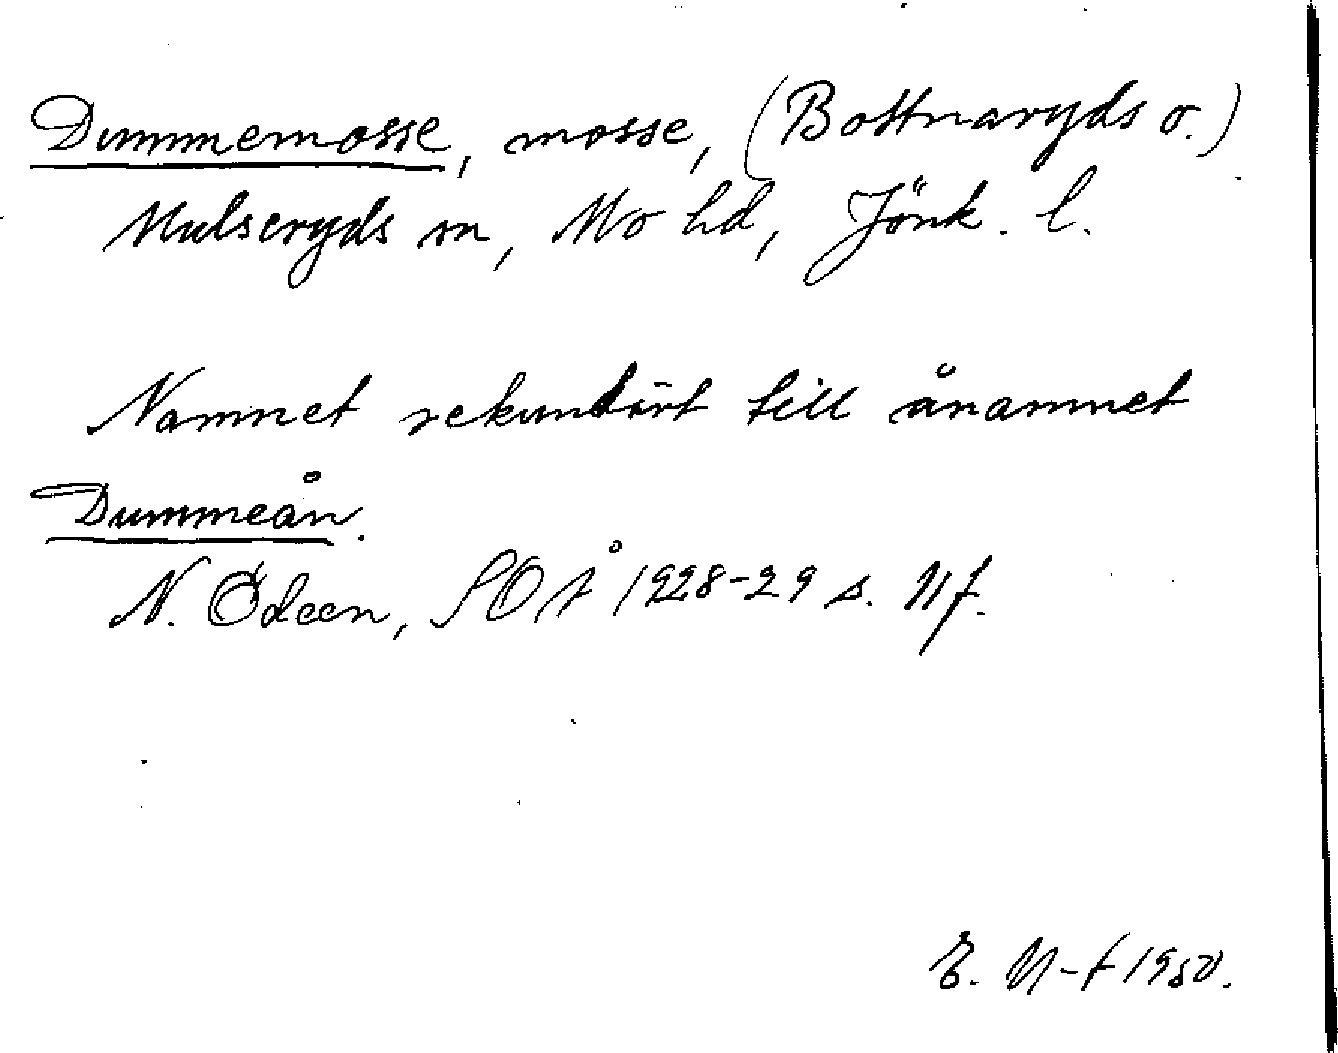 Dummemosse, mosse, (Bottnaryds o.)
Mulseryds sn, Mo hd, Jönk. l.
Namnet sekundärt till ånamnet
Dummeån.
N. Ödeen, SOÅ 1928-29 s. 11f.
E. N-t 1950.